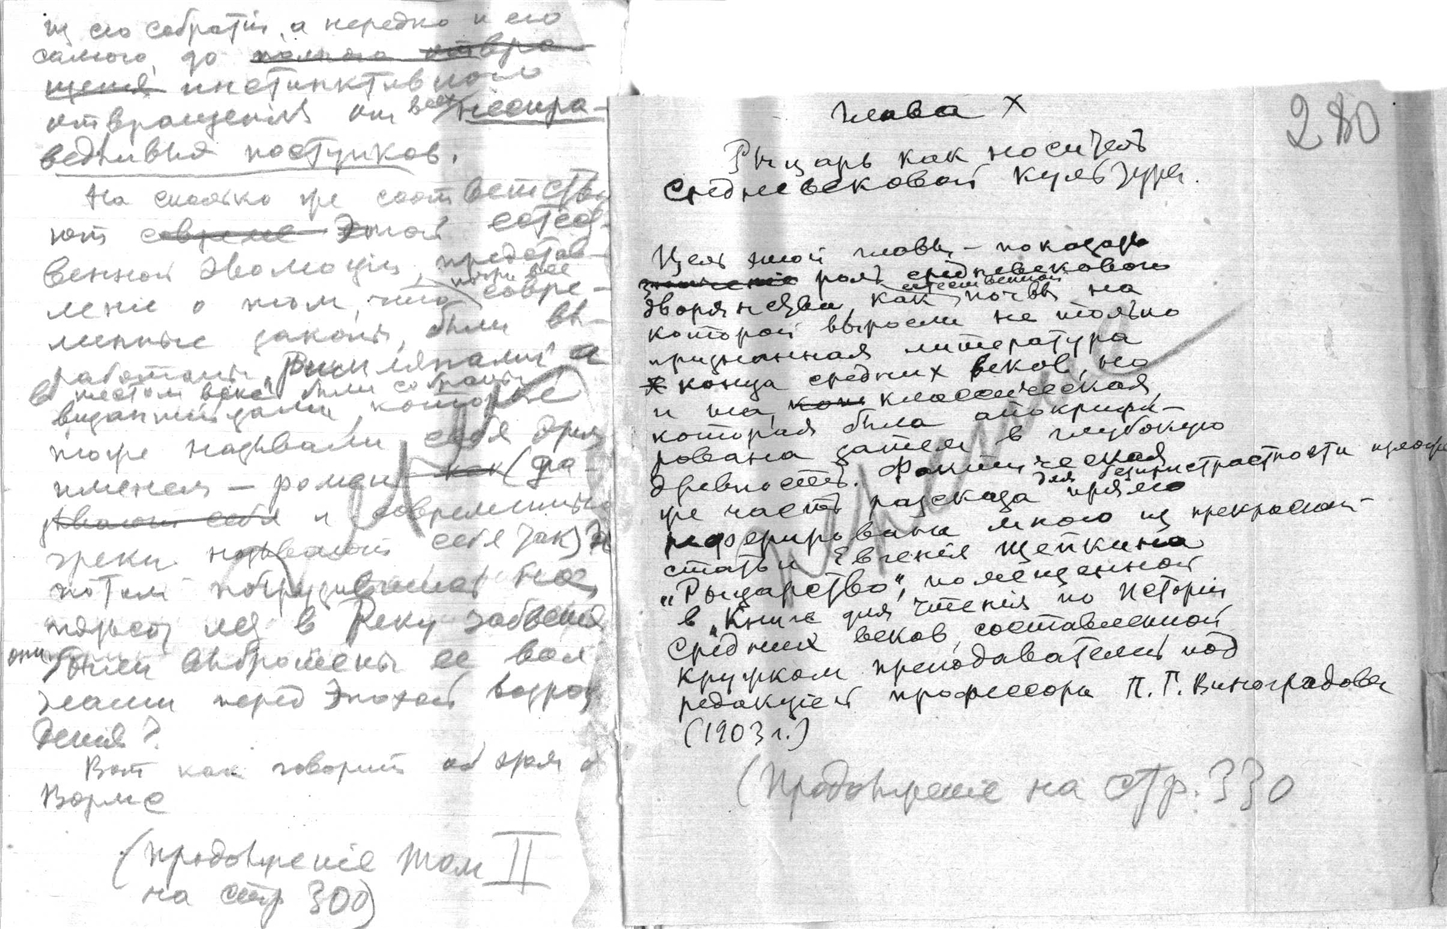 их его собратий, а нередко и его
самого, до полнаго отвра-
щения инстинктивного
отвращения от всех несправ-
едливых поступков.
На сколько же соответству
ют совреме этой естест-
венной эволюции, представ-
ление о том, что при нее совре-
менные законы, были вы-
работаны римлянами а
в шестом веке были собраны
византийцами, которые
тоже называли себя этим
именем — ромеи как (на-
зывают себя и современные
греки называют себя так) и
потом погрузившись на
тысячу лет в Реку забвения
они были выброшены ее вол
нами перед Эпохой возрож
дения?
Вот как говорит об этом
Вормс
(продолжение том II
на стр 300)
280
глава X
Рыцарь как носитель
средневековой культуры.
Цель этой главы — показать
значение роль средневекового
дворянства, как естественной почвы на
которой выросли не только
признанная литература
конца средних веков, но
и та, как классическая
которая была апокрифи-
рована затем в глубокую
древность. Фактическая
же часть рассказа для беспристрастности прямо
реферирована мною из прекрасной
статьи Евгения Щепкина
„Рыцарство“, помещенной
в „Книге для чтения по Истории
средних веков, составленной
кружком преподавателей под
редакцией профессора П. Г. Виноградова
(1903 г.)
(Продолжение на стр. 330